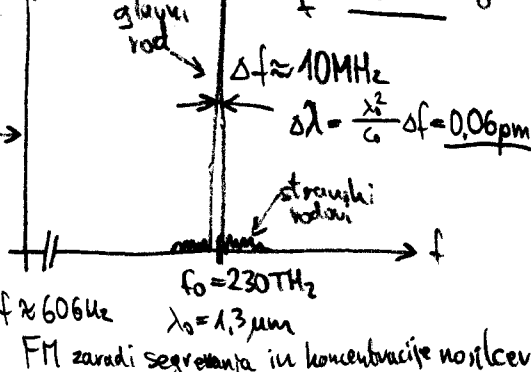 glavni
rod
Δf≈10MHz
Δλ = λ₀²/c₀ Δf = 0,06pm
stranski
rodovi
f
f₀=230THz
f≈60GHz
λ₀=1,3μm
FM zaradi segrevanja in koncentracije nosilcev